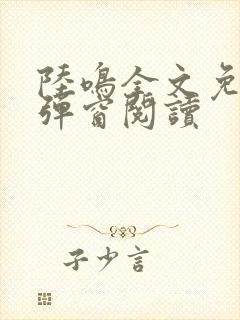 陸鳴全文免
彈窗閱讀
子少言